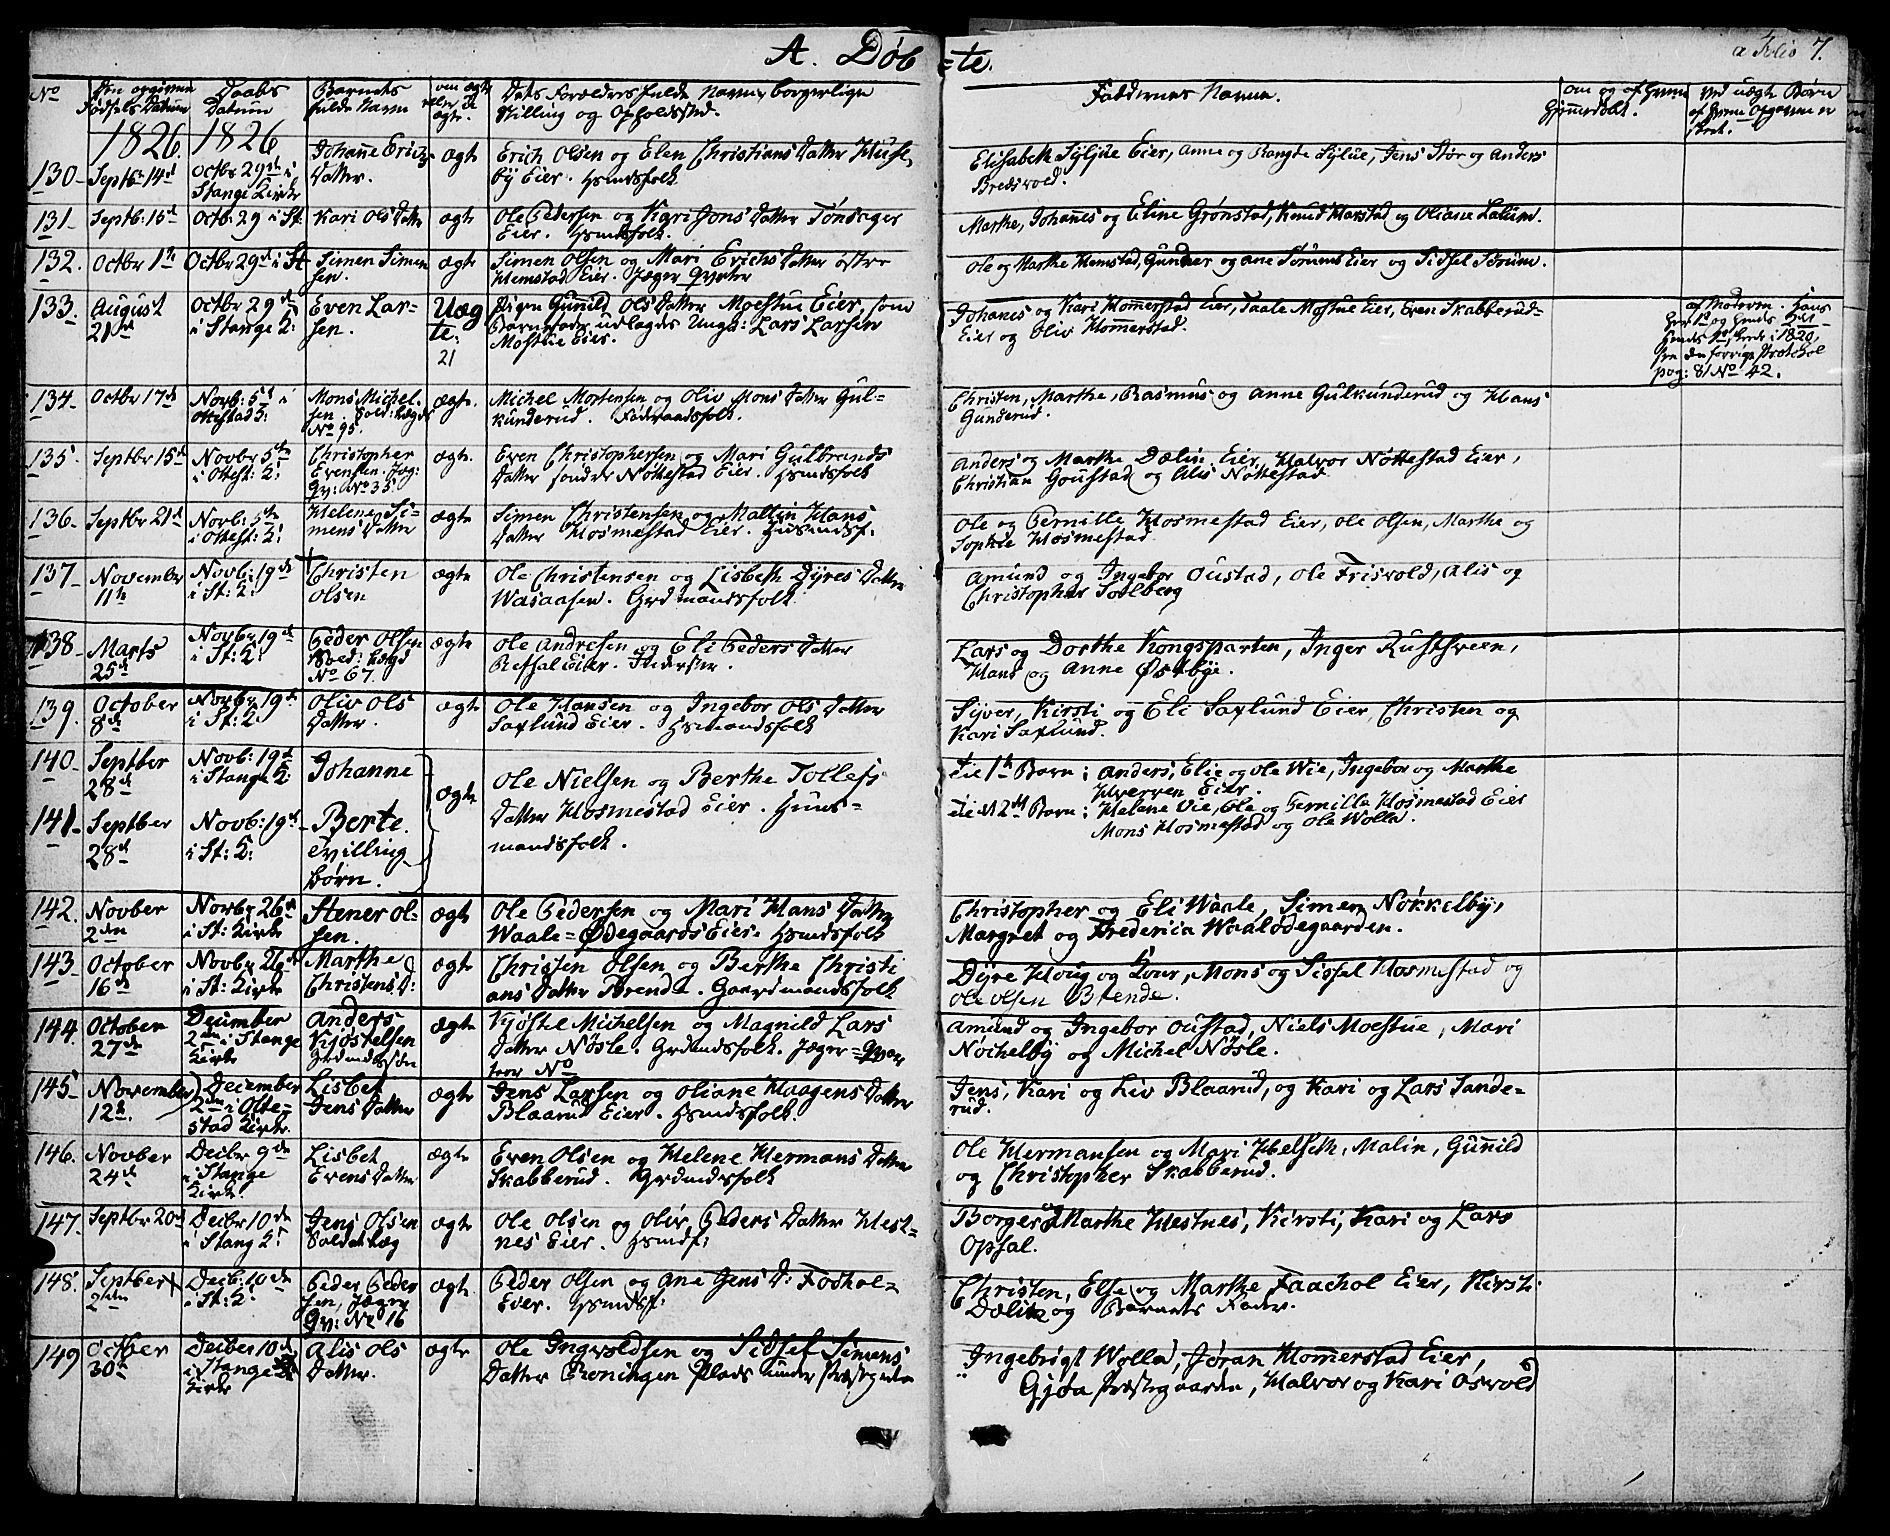 A. Døb
=te.
a Folio 7.
No
Den opgivne Fødsels Datum
Daabs Datum
Barnets fulde Navn
om ægte eller u ægte.
Dets Forældres fulde Navne, borgerlige Stilling og Opholdssted.
Faddernes Navne.
om og af hvem hjemmedøbt.
ved uægte Børn af hvem Opgaven er skeet.
1826.
1826
130
Septb: 14d
Octbr 29de i Stange Kirke
Johanne Erichs Datter.
ægte
Erich Olsen og Elen Christians Datter
by Eier. Hsmdsfolk
Elisabeth Eier, Anne og
131.
Septb: 15d
Octb: 29 i St:
Kari Ols Datter
ægte
Ole Pedersen og Kari Jons Datter Tønsager
Eier. Hsmdsfolk.
Marthe, Johanes og Eline Grønstad, Knud Harstad og Oliane Lalum.
132.
Octbr 1te
Octbr 29de i St
Simen Simen
sen.
ægte
Simen Olsen og Mari Erichs Datter østre
Hemstad Eier. Jæger Qvarter
Ole og Marthe Hemstad, Gunder og Ane Sørums Eier og Sidsel Sørum.
133.
August
21de
Octbr 29de
i Stange K:
Even Lar-
sen.
Uæg
te:
21
Pigen Gunild Ols Datter Moestue Eier, som
Barnefader udlagdes Ungk: Lars Larsen
Mostue Eier.
Johanes og Kari Hommerstad Eier, Mostue Eier, Even Skabberud-
Eier og Oliv Hommerstad.
af Moderen. Hans
i 1820,
pag: 81 No 42.
134.
Octbr 17de
Novb: 5d i
Ottestad K:
Mons Michel
sen. Sold: Lægd
No 95.
ægte.
Michel Mortensen og Oliv Mons Datter Gul-
kunderud. Føderaadsfolk.
Christen, Marthe, Rasmus og Anne Gulkunderud og Hans
Gunderud.
135.
Septbr 15de
Novbr 5te
i Ottest: K:
Christopher
Evensen. Jæg:
Qv: No 35.
ægte.
Even Christophersen og Mari Gulbrands
Datter søndre Nøttestad Eier. Hsmdsfolk
Anders og Marthe Dælin Eier, Halvor Nøttestad Eier,
Christian Goustad og Alis Nøttestad.
136.
Septbr 21d
Novb: 5te
i Ottest: K:
Helene Si-
mens Datter
ægte
Simen Christensen og Maltin Hans
Datter Hosmestad Eier. Husmdsf:
Ole og Pernille Hosmestad Eier, Ole Olsen, Marthe og
Sophie Hosmestad
137.
November
11te
Novb: 19de
i St: K:
Christen
Olsen
ægte
Ole Christensen og Lisbeth Dyres Datter
Wasaasen. Grdmandsfolk
Amund og Ingebor Oustad, Ole Frisvold, Alis og
Christopher Solberg
138.
Marts
25d
Novbr 19de
i St: K:
Peder Olsen
Sold: Lægd
No 67.
ægte
Ole Andresen og Eli Peders Datter
Refsal Eier.
Lars og Dorthe Kongsparten, Inger Rustsveen,
Hans og Anne Østbye.
139.
October
8de
Novbr 19de
i St: K:
Oliv Ols
Datter.
ægte
Ole Hansen og Ingebor Ols Datter
Saxlund Eier. Hsmandsfolk
Syver, Kirsti og Eli Saxlund Eier, Christen og
Kari Saxlund.
140.
Septber
28d
Novb: 19d
i Stange K:
Johanne
ægte
Ole Nielsen og Berthe Tollefs
Datter Hosmestad Eier. Huus-
mandsfolk.
Til 1te Barn: Anders, Elie og Ole Wie, Ingebor og Marthe
Hverven Eier.
141.
Septber
28d
Novb: 19d
i St: K:
Berte.
Tvilling-
børn.
Til det 2det Barn: Helene Vie, Ole og Pernille Hosmestad Eier
Mons Hosmestad og Ole Wolla.
142.
Novber
2den
Novbr 26de
i St: Kirke
Stener Ol-
sen.
ægte
Ole Pedersen og Mari Hans Datter
Waale=Ødegaards Eier. Hsmdsfolk
Christopher og Eli Waale, Simen Nökkelby,
Margret og Frederica Waalødegaarden.
143.
October
16de
Novbr 26de
i St: Kirke
Marthe
Christens D:
ægte
Christen Olsen og Berthe Christi
ans Datter Brende. Gaardmandsfolk
Dyre Houg og Mons og Sissel Hosmestad og
Ole Olsen Brende.
144.
October
27de
December
2den i Stange
Kirke
Anders
Kjøstelsen
Grdmdssøn
ægte
Kjøstel Michelsen og Magnild Lars
Datter Nøsle. Grdmdsfolk. Jæger=Qvar
teer No
Amund og Ingebor Oustad, Niels Moestue, Mari
Nöchelby og Michel Nøsle.
145.
November
12te.
December
2den i Otte-
stad Kirke.
Lisbet
Jens Datter
ægte
Jens Larsen og Oliane Haagens Datter
Blaarud Eier. Hsmdsfolk.
Jens, Kari og Liv Blaarud, og Kari og Lars Sande-
rud.
146.
Novber
24de
Decbr 9de
i Stange
Kirke
Lisbet
Evens Datter
ægte
Even Olsen og Helene Hermans Datter
Skabberud. Grdmdsfolk
Ole Hermansen og Mari Helseth, Malin, Gunild
og Christopher Skabberud.
147.
Septbr 20d
Decbr 10de
i Stang K:
Jens Olsen
Soldat Læg
ægte
Ole Olsen og Oliv Peders Datter Hest-
nes Eier. Hsmdf:
Borger og Marthe Hestnes, Kirsti, Kari og Lars
Opsal.
148.
Septber
2den
Decb: 10de
i St: K:
Peder Peder
sen, Jæger
Qv: No 16
ægte.
Peder Olsen og Ane Jens D: Fokhol-
Eier. Hsmdsf:
Christen, Else og Marthe Faachol Eier, Kirsti
Dælin og Barnets Fader.
149
October
30te
Decber 10d
i Stange
Kirke
Alis Ols
Datter.
ægte
Ole Ingvoldsen og Sidsel Simens
Datter Groningen Plads under Præstegrden
Ingebrigt Wolla, Jøran Hommerstad Eier,
Gjøa Præstegaarden, Halvor og Kari Osvold